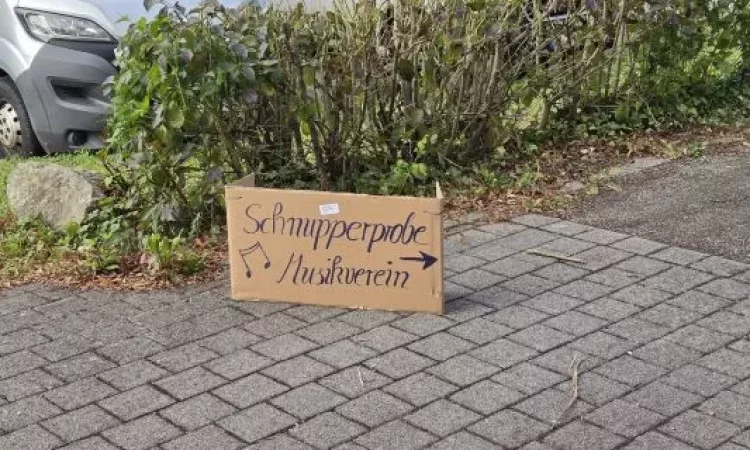 Schnupperprobe
Musikverein